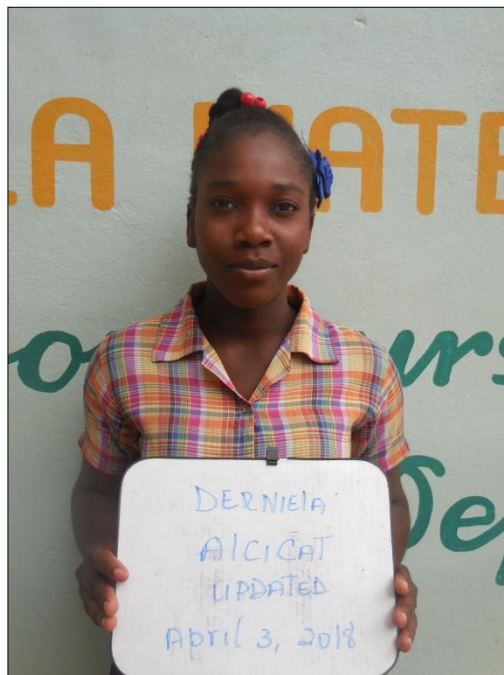 LA MATE
urs
De
DERNIELA
AlCiCAT
UPDATED
April 3, 2018